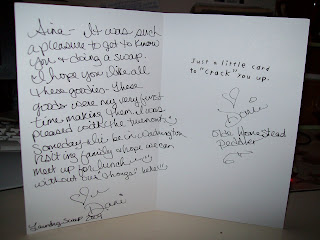 Aina - It was such
a pleasure to get to know
you & doing a swap.
I hope you like all
these goodies - These
goodies were my very first
time making them & was
pleased with the turnout.
Someday I'll be in Washington
visiting family & hope we can
meet up for lunch
without our
Dani
Laundry Soap 2009
Just a little card
to "Crack" you up.
Dani
Homestead
6